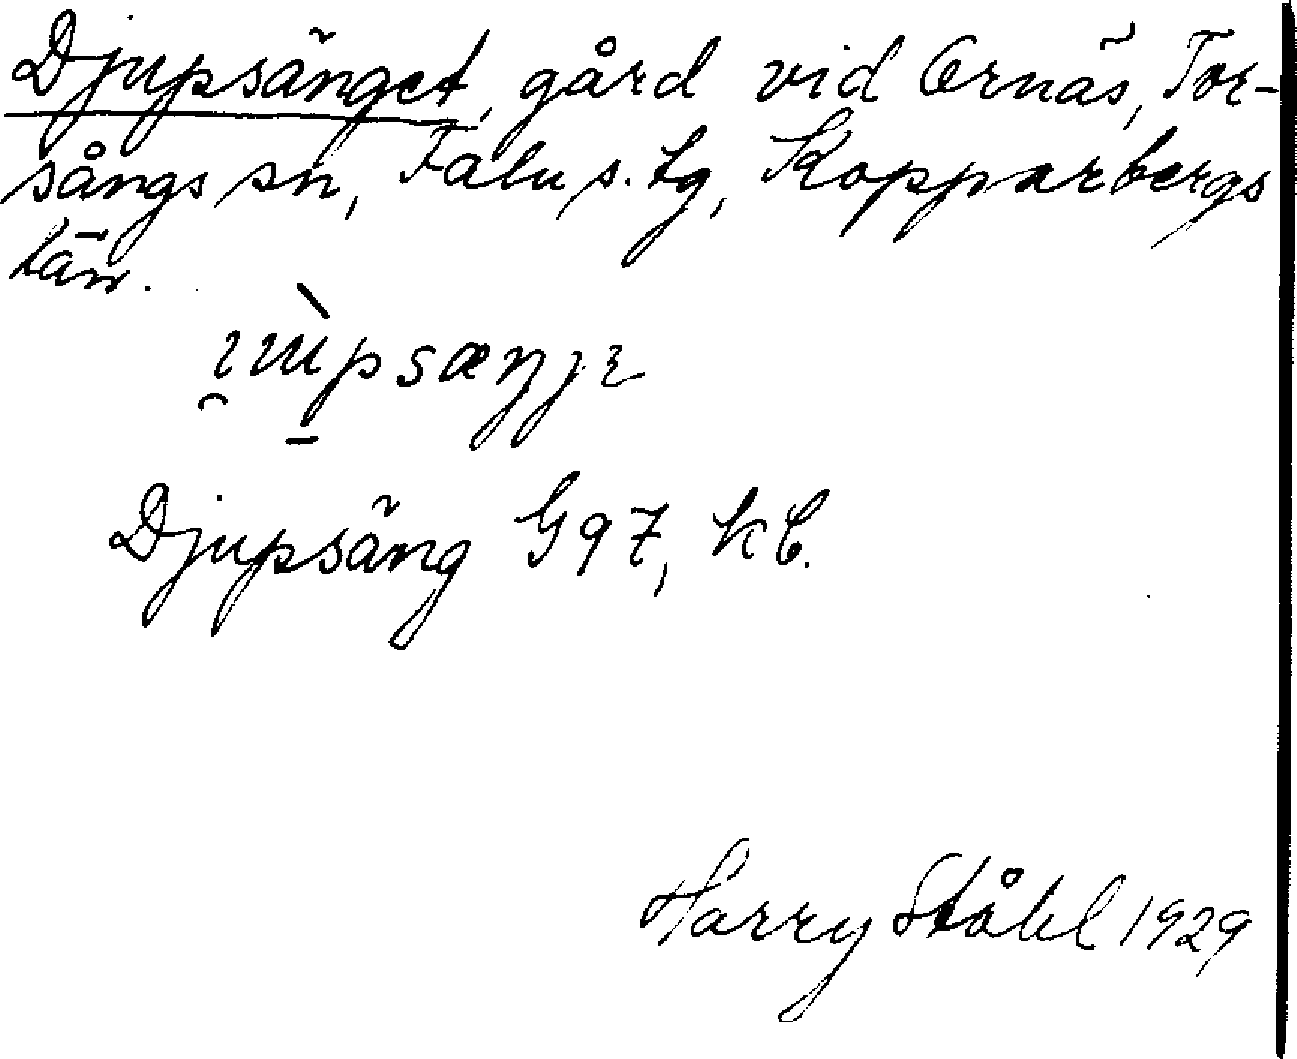 Djupsänget, gård vid Ornäs, Tor-
sångs sn, Falu s. tg, Kopparbergs
län.
Djupsäng G97, kb.
Harry Ståhl 1929